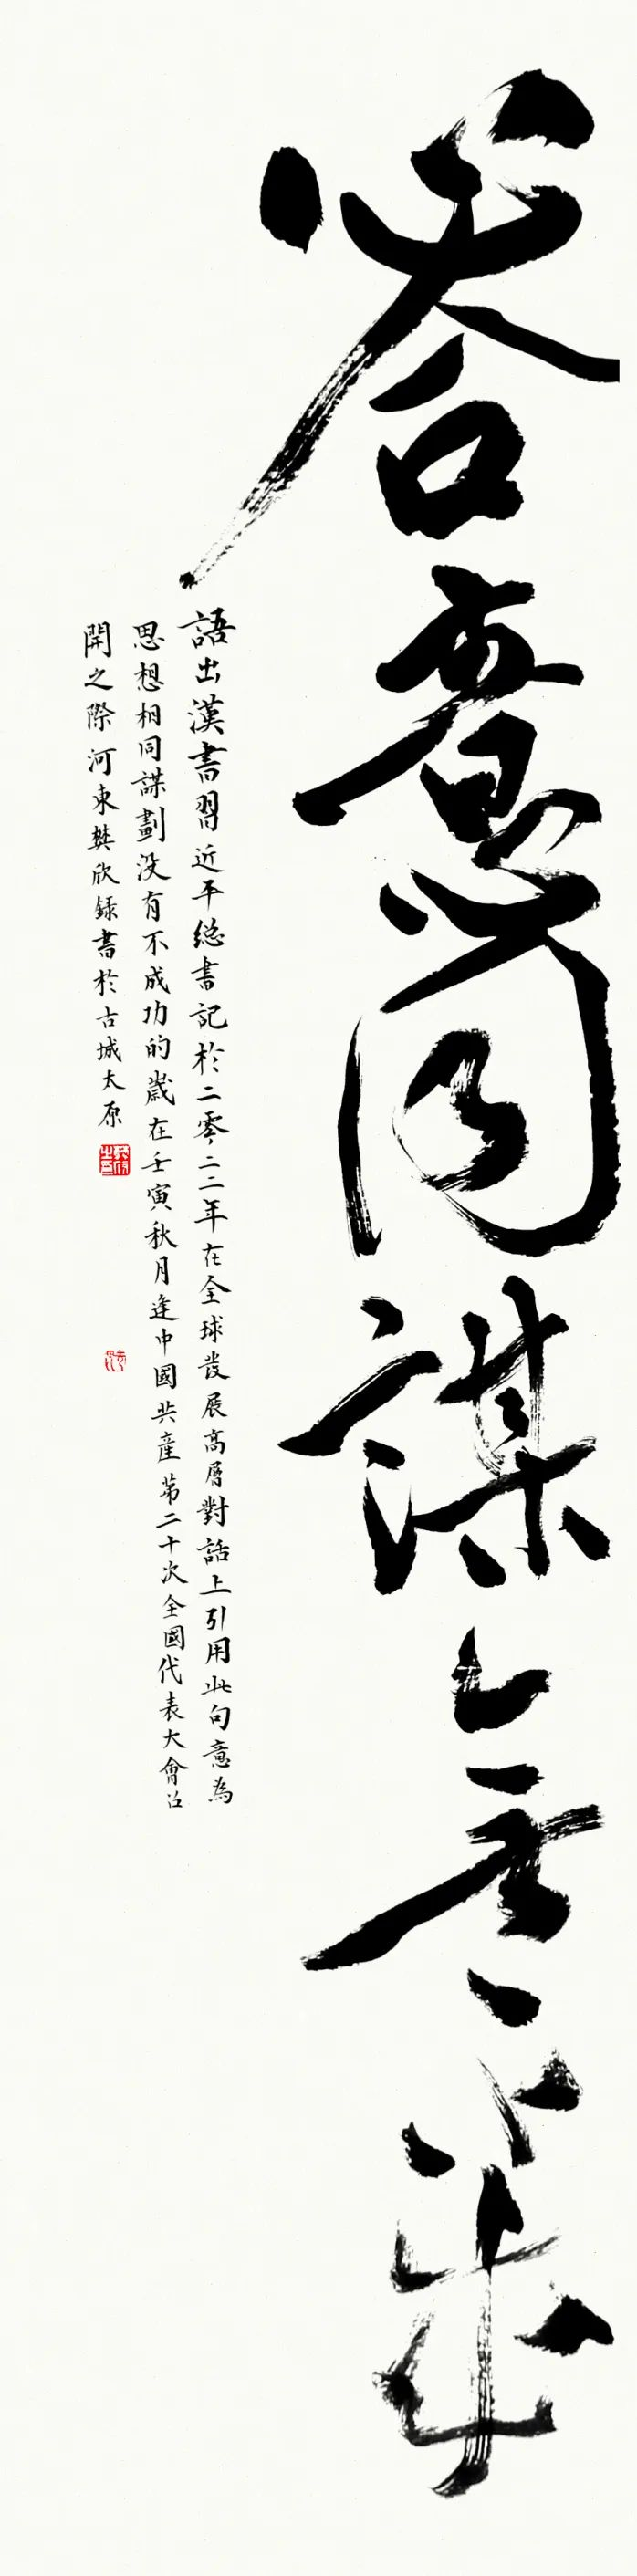 心合意同謀無不成
語出漢書習近平総書記於二零二二年在全球發展高層對話上引用此句意為
思想相同謀劃没有不成功的歲在壬寅秋月逢中國共產第二十次全國代表大會召
開之際河東樊欣録書於古城太原